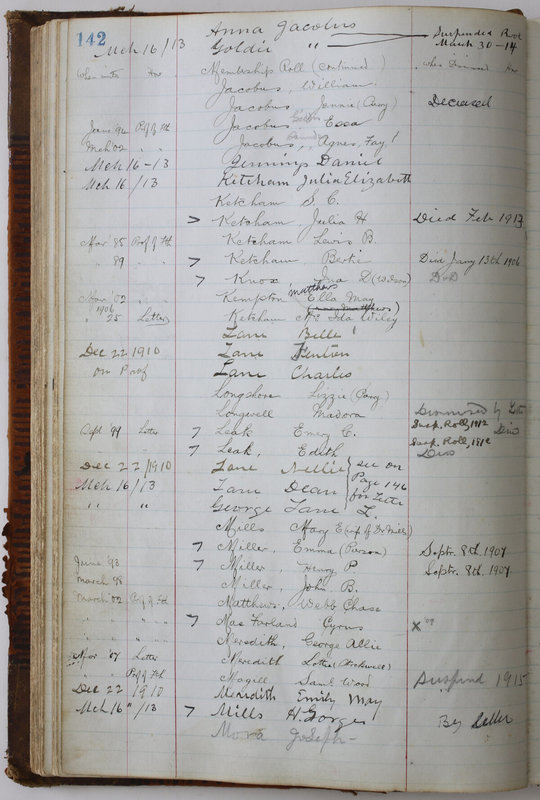 142 Anna Jacobus Suspended Roll
Mch 16/13 Goldie " March 30-14
When into How Membership Roll (continued) When Dismissed How
Jacobus, William
Jacobus, Jennie (Carry) Deceased
June '94 Prof of Fth Jacobus Essa
Mch '02 " " Jacobus, Agnes, Fay,
Mch 16-13 Jennings Daniel
Mch 16/13 Ketcham Julia Elizabeth
Ketcham S. C.
> Ketcham, Julia H Died Feb 1913
Mar '85 Prof of Fth Ketcham Lewis B.
" 89 " " 7 Ketcham, Bertie Died Jany 13th 1906
7 Knox Ina D (Wilson) Died
Mar '02 " " Kempton Matthews Ella May
(Mary Matthews)
1906 '25 Letter Ketcham Ida Wiley
Lane Belle
Dec 22 1910 Lane Fenton
on Prof Lane Charles
Longshore Lizzie (Carry)
Longwell Madora Dismissed by Letter
Sept '99 Letter 7 Leak Emery C. Susp. Roll, 1912 Dis
7 Leak, Edith Susp. Roll, 1912 Diss
Dec 22/1910 Lane Nellie } see on
Mch 16/13 Lane Dean } Page 146
" " George Lane L. for Letter
Mills Mary E (wf of Dr Mills)
7 Miller, Emma (Pierson) Septr. 8th. 1907
June '93 7 Miller, Henry P Septr. 8th. 1907
March 98 Miller, John B.
March '02 Prof of Fth Matthews, Webb Chase
" " " " 7 Mac Farland Cyrus x '09
" " " " Meredith, George Allie
Mar '07 Letter Meredith Lottie (Stockwell)
" " Prof of Fth Magill Saml Wood Suspend 1915
Dec 22/1910 Meridith Emily May
Mch 16"/13 7 Mills H. George By Letter
Mora Joseph